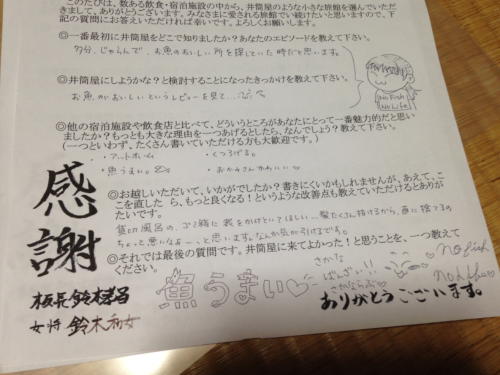 このたびは、数ある飲食・宿泊施設の中から、井筒屋のような小さな旅館を選んでいただ
きまして、ありがとうございます。みなさまに愛される旅館でい続けたいと思いますので、下
記の質問にお答えいただければ幸いです。よろしくお願いします。
◎一番最初に井筒屋をどこで知りましたか？あなたのエピソードを教えて下さい。
多分、じゃらんで、お魚のおいしい所を探していた時だと思います。
No Fish
No Life!
◎井筒屋にしようかな？と検討することになったきっかけを教えて下さい。
お魚がおいしいというレビューを見て...
◎他の宿泊施設や飲食店と比べて、どういうところがあなたにとって一番魅力的だと思い
ましたか？もっとも大きな理由を一つあげるとしたら、なんでしょう？教えて下さい。
(一つといわず、たくさん書いていただける方も大歓迎です。)
・アットホーム ・くつろげる。
・魚うまい。 ・おかみさんかわいい
◎お越しいただいて、いかがでしたか？書きにくいかもしれませんが、あえて、こ
こを直したら、もっと良くなる！というような改善点も教えていただけるとありが
たいです。
貸切風呂の、ゴミ箱に袋をかけといてほしい...髪たくさん抜けるから、直に捨てるの
ちょっと悪いなぁーっと思います。なんか気が引けるです。
◎それでは最後の質問です。井筒屋に来てよかった！と思うことを、一つ教えて
ください。
魚うまい♡
さかな
ばんざい!!
No fish
No Life
感謝
板長 鈴木
女将 鈴木
ありがとうございます。